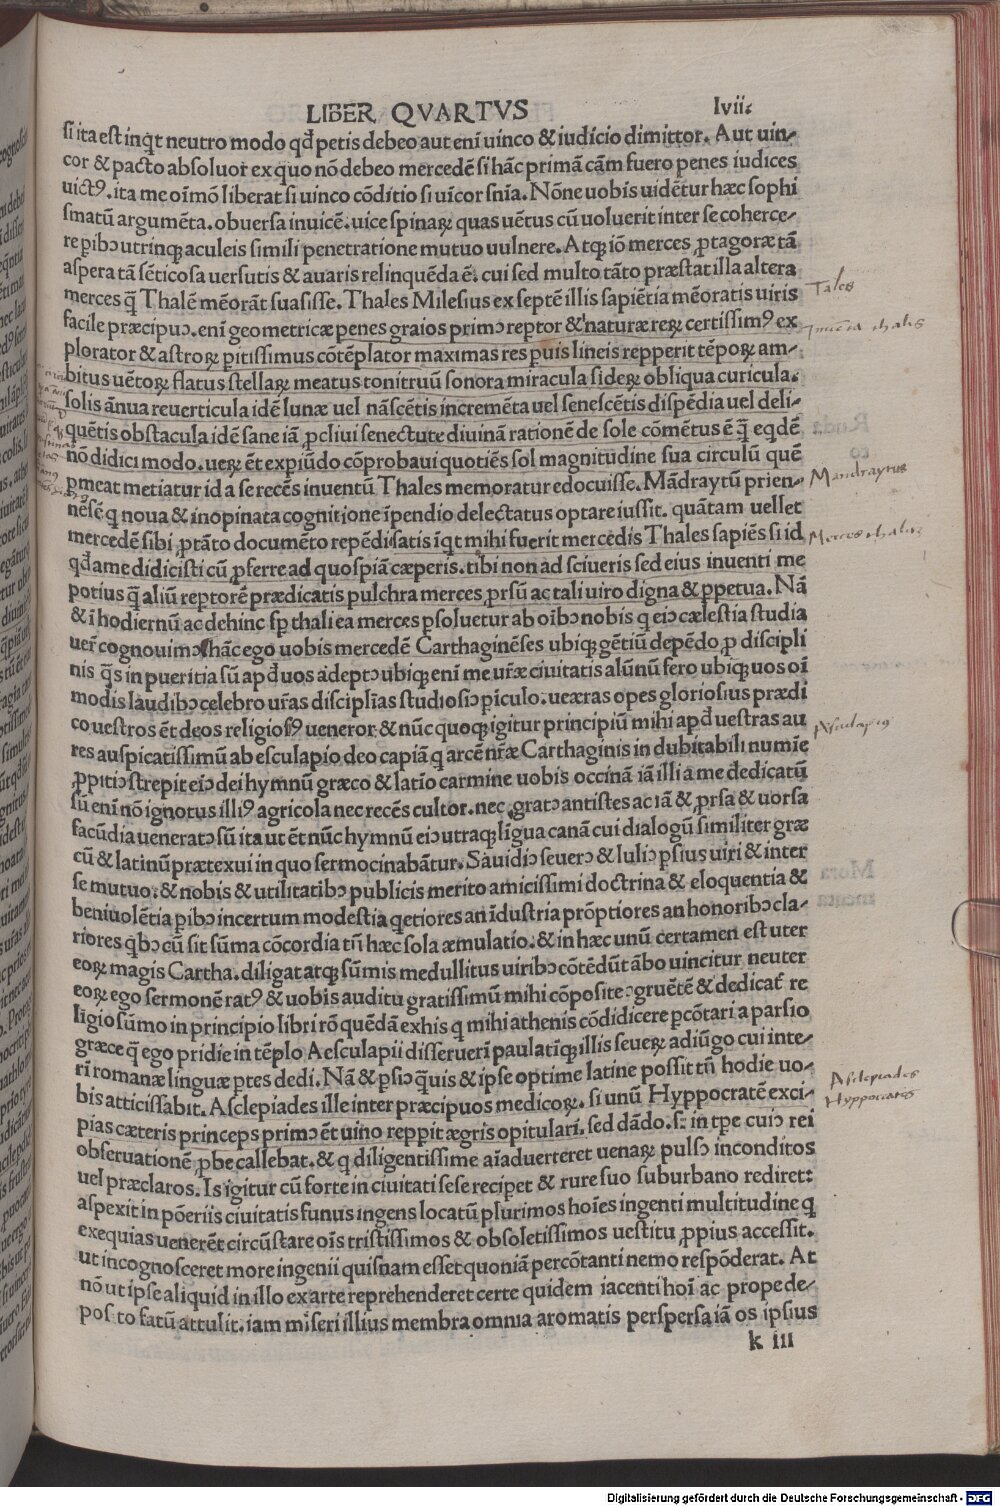 LIBER QVARTVS lvii.
si ita est inqͥt neutro modo qđ petis debeo aut eni uinco & iudicio dimittor. Aut uin-
cor & pacto absoluor ex quo nō debeo mercedē si hāc primā cām fuero penes iudices
uictꝰ. ita me oīmō liberat si uinco cōditio si uīcor snīa. Nōne uobis uidētur hæc sophi
smatū argumēta. obuersa inuicē. uice spinaꝝ quas uētus cū uoluerit inter se coherce-
re ꝑibꝰ utrinqꝫ aculeis simili penetratione mutuo uulnere. Atqꝫ iō merces ꝓtagoræ tā
aspera tā sēticosa uersutis & auaris relinquēda ē. cui sed multo tāto præstat illa altera
merces q̄ Thalē mēorāt suasisse. Thales Milesius ex septē illis sapiētia mēoratis uiris
facile præcipuꝰ. eni geometricæ penes graios primꝰ reptor & naturæ reꝝ certissimꝰ ex
plorator & astroꝝ ꝑitissimus cōtēplator maximas res ꝑuis lineis repperit tēpoꝝ am-
bitus uētoꝝ flatus stellaꝝ meatus tonitruū sonora miracula sideꝝ obliqua curicula.
solis ānua reuerticula idē lunæ uel nāscētis incremēta uel senescētis dispēdia uel deli-
quētis obstacula idē sane iā ꝓcliui senectute diuinā rationē de sole cōmētus ē q̄ eqdē
nō didici modo. ueꝝ ēt expiūdo cōprobaui quotiēs sol magnitudine sua circulū quē
ꝑmeat metiatur id a se recēs inuentū Thales memoratur edocuisse. Mādraytū prien-
nēsē q noua & inopinata cognitione īpendio delectatus optare iussit. quātam uellet
mercedē sibi ꝓ tāto documēto repēdi satis īqt mihi fuerit mercedis Thales sapiēs si id
qđ a me didicisti cū ꝓferre ad quospiā cæperis. tibi non ad sciueris sed eius inuenti me
potius q̄ aliū reptorē prædicatis pulchra merces ꝓrsū ac tali uiro digna & ꝑpetua. Nā
& ī hodiernū ac dehinc sꝑ thali ea merces ꝑsoluetur ab oībꝰ nobis q eiꝰ cælestia studia
uer̄ cognouimꝰ hāc ego uobis mercedē Carthaginēses ubiqꝫ gētiū depēdo ꝓ discipli
nis q̄s in pueritia sū apđ uos adeptꝰ ubiqꝫ eni me ur̄æ ciuitatis alūnū fero ubiqꝫ uos oī
modis laudibꝰ celebro ur̄as disciplīas studiosiꝰ ꝑiculo. ueæras opes gloriosius prædi
co uestros ēt deos religiosꝰ ueneror & nūc quoqꝫ igitur principiū mihi apđ uestras au
res auspicatissimū ab esculapio deo capiā q arcē nr̄æ Carthaginis in dubitabili numīe
ꝓpitiꝰ strepit eiꝰ dei hymnū græco & latīo carmine uobis occinā iā illi a me dedicatū
sū eni nō ignotus illiꝰ agricola nec recēs cultor. nec gratꝰ antistes ac iā & ꝓrsa & uorsa
facūdia ueneratꝰ sū ita ut ēt nūc hymnū eiꝰ utraqꝫ līgua canā cui dialogū similiter græ
cū & latinū prætexui in quo sermocinabāntur. Sauidiꝰ seuerꝰ & Iuliꝰ ꝑsius uiri & inter
se mutuo. & nobis & utilitatibꝰ publicis merito amicissimi doctrina & eloquentia &
beniuolētia ꝑibꝰ incertum modestīa qetiores an īdustria prōptiores an honoribꝰ cla-
riores qͥbꝰ cū sit sūma cōcordia tn̄ hæc sola æmulatio. & in hæc unū certamen est uter
eoꝝ magis Cartha. diligat atqꝫ sūmis medullitus uiribꝰ cōtēdūt ābo uincitur neuter
eoꝝ ego sermonē ratꝰ & uobis auditu gratissimū mihi cōposite ꝰgruētē & dedicat̄ re
ligio sūmo in principio libri rō quēdā ex his q mihi athenis cōdidicere ꝑcōtari a ꝑsio
græce q̄ ego pridie in tēplo Aesculapii disseruerī paulatīqꝫ illis seueꝝ adiūgo cui inte-
rī romanæ linguæ ꝑtes dedi. Nā & ꝑsiꝰ q̄uis & ipse optime latine possit tn̄ hodie uo-
bis atticissabit. Asclepiades ille inter præcipuos medicoꝝ. si unū Hyppocratē exci-
pias cæteris princeps primꝰ ēt uino reppit ægris opitulari. sed dādo. sꝫ in tꝑe cuiꝰ rei
obseruationē ꝓbe callebat. & q diligentissime aīaduerteret uenaꝝ pulsꝰ inconditos
uel præclaros. Is igitur cū forte in ciuitati sese reciꝑet & rure suo suburbano rediret:
aspexit in pōeriis ciuitatis funus ingens locatū plurimos hoīes ingenti multitudine q
exequias uenerēt circūstare oīs tristissimos & obsoletissimos uestitu ꝓpius accessit.
ut incognosceret more ingenii quisnam esset quoniā percōtanti nemo respōderat. At
nō ut ipse aliquid in illo ex arte reprehenderet certe quidem iacenti hoī ac prope de-
posito fatū attulit. iam miseri illius membra omnia aromatis perspersa iā os ipsius
k iii
Tales
Mandraytus
Merces thaletis
Asclepiades
Hyppocrates
Digitalisierung gefördert durch die Deutsche Forschungsgemeinschaft - DFG